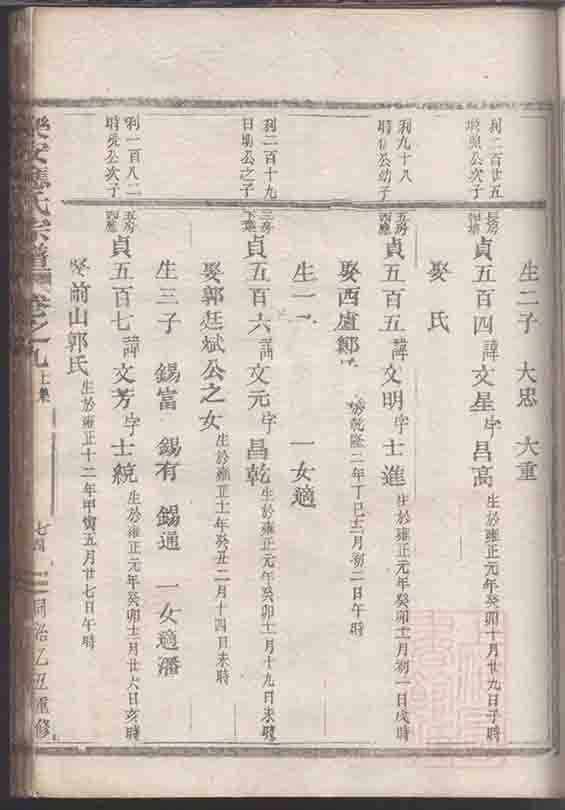 生二子 大忠 大重
利二百廿五
公次子
長房
貞五百四諱文星字昌高生於雍正元年癸卯十月廿九日子時
娶氏
利九十八
公幼子
五房
貞五百五諱文明字士進生於雍正元年癸卯十二月初一日戌時
娶西盧鄭氏 乾隆二年丁巳十二月初二日午時
生一 一女適
利二百十九
公之子
三房
貞五百六諱文元字昌乾生於雍正元年癸卯十二月十九日未時
娶郭廷斌公之女生於雍正十一年癸丑二月十四日未時
生三子 錫富 錫有 錫通 一女適潘
利一百八二
公次子
五房
貞五百七諱文芳字士統生於雍正元年癸卯十二月廿六日亥時
娶前山郭氏生於雍正十二年甲寅五月廿七日午時
樂安應氏宗譜 卷之九上集 七四 同治乙丑重修